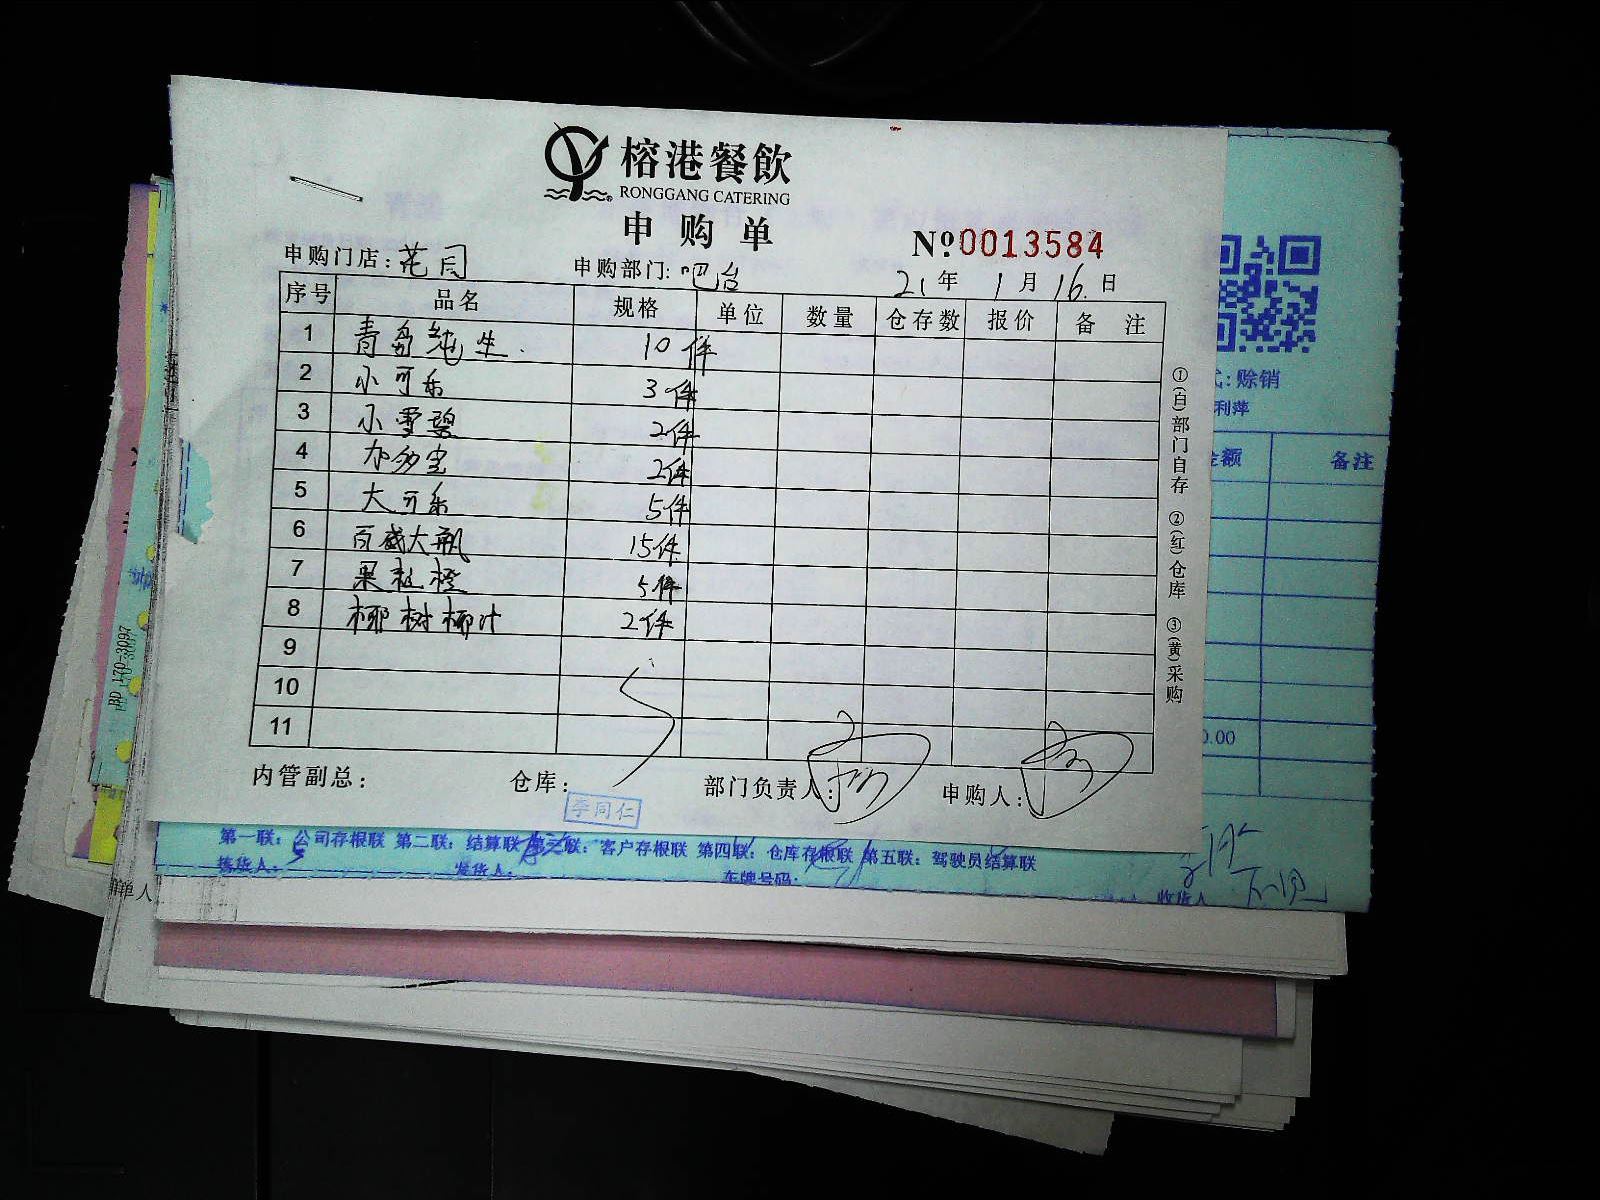 榕港餐飲
RONGGANG CATERING
申购单
№0013584
申购门店:花园 申购部门:吧台 21年1月16日
序号 品名 规格 单位 数量 仓存数 报价 备注
1 青岛纯生 10件
2 小可乐 3件
3 小雪碧 2件
4 加多宝 2件
5 大可乐 5件
6 百威大瓶 15件
7 果粒橙 5件
8 椰树椰汁 2件
9
10
11
内管副总: 仓库: 部门负责人: 申购人:
李同仁
①(白)部门自存 ②(红)仓库 ③(黄)采购
:赊销
利萍
金额 备注
0.00
第一联:公司存根联 第二联:结算联 第三联:客户存根联 第四联:仓库存根联 第五联:驾驶员结算联
拣货人: 发货人: 车牌号码: 收货人
单人
BD 170-3097